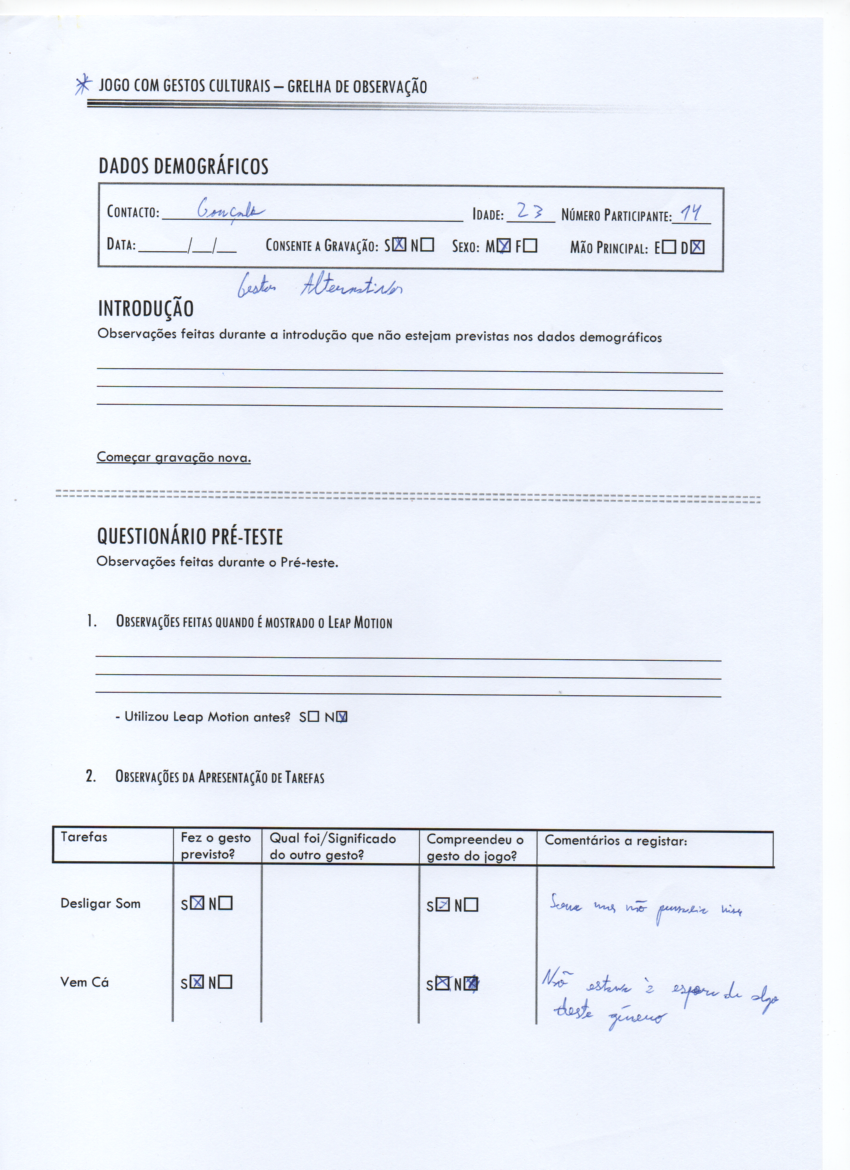 JOGO COM GESTOS CULTURAIS – GRELHA DE OBSERVAÇÃO
DADOS DEMOGRÁFICOS
CONTACTO: Gonçalo IDADE: 23 NÚMERO PARTICIPANTE: 14
DATA: ______/__/__ CONSENTE A GRAVAÇÃO: S☒ N☐ SEXO: M☒ F☐ MÃO PRINCIPAL: E☐ D☒
Gestos Alternativos
INTRODUÇÃO
Observações feitas durante a introdução que não estejam previstas nos dados demográficos
Começar gravação nova.
QUESTIONÁRIO PRÉ-TESTE
Observações feitas durante o Pré-teste.
1. OBSERVAÇÕES FEITAS QUANDO É MOSTRADO O LEAP MOTION
- Utilizou Leap Motion antes? S☐ N☒
2. OBSERVAÇÕES DA APRESENTAÇÃO DE TAREFAS
Tarefas Fez o gesto previsto? Qual foi/Significado do outro gesto? Compreendeu o gesto do jogo? Comentários a registar:
Desligar Som S☒ N☐ S☒ N☐ mas não
Vem Cá S☒ N☐ S☒ N☒ Não estava à espera de algo
deste género